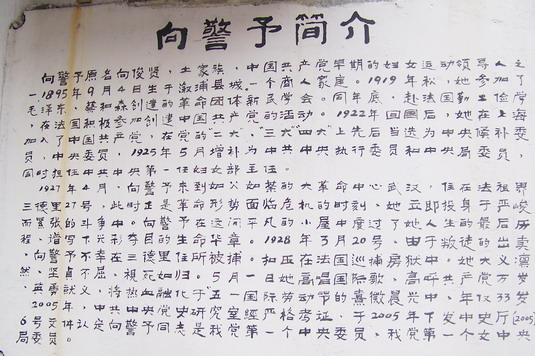 向警予简介
向警予原名向俊贤，土家族，中国共产党早期的妇女运动领导人之
一。1895年9月4日生于溆浦县城一个商人家庭。1919年秋，她参加了
毛泽东、蔡和森创建的革命团体新民学会。同年底，赴法国勤工俭学
，在法国积极参加创建中国共产党的活动。1922年回国后，她在上海
加入了中国共产党，在党的"二大"、"三大""四大"上先后当选为中央候补委
员，中央委员，1925年5月增补为中共中央执行委员和中央局委员，
同时担任中共中央第一任妇女部主任。
1927年4月，向警予来到如火如荼的大革命中心武汉，住在法租界
三德里27号，此时正是革命形势面临危机的时刻，她立即投身于严峻
而紧张的斗争中。向警予在这间平凡的小屋中度过了她人生的最后历
程，谱写下光彩夺目的生命华章。1928年3月20号，由于叛徒的出卖
，向警予不幸在三德里住所被捕。扣压在法国巡捕房狱中，她大义凛
然，坚贞不屈，视死如归。5月一日她高唱国际歌，高呼共产党万岁
，英勇就义，将热血融化于"五一"国际劳动节的熹微晨光中，年仅33岁
2005年，中共中央党史研究室经严格考证，于2005年下发中史厅(2005)
6号文件，认定向警予同志是我党第一个中央委员，我党第一个女中央
局委员。